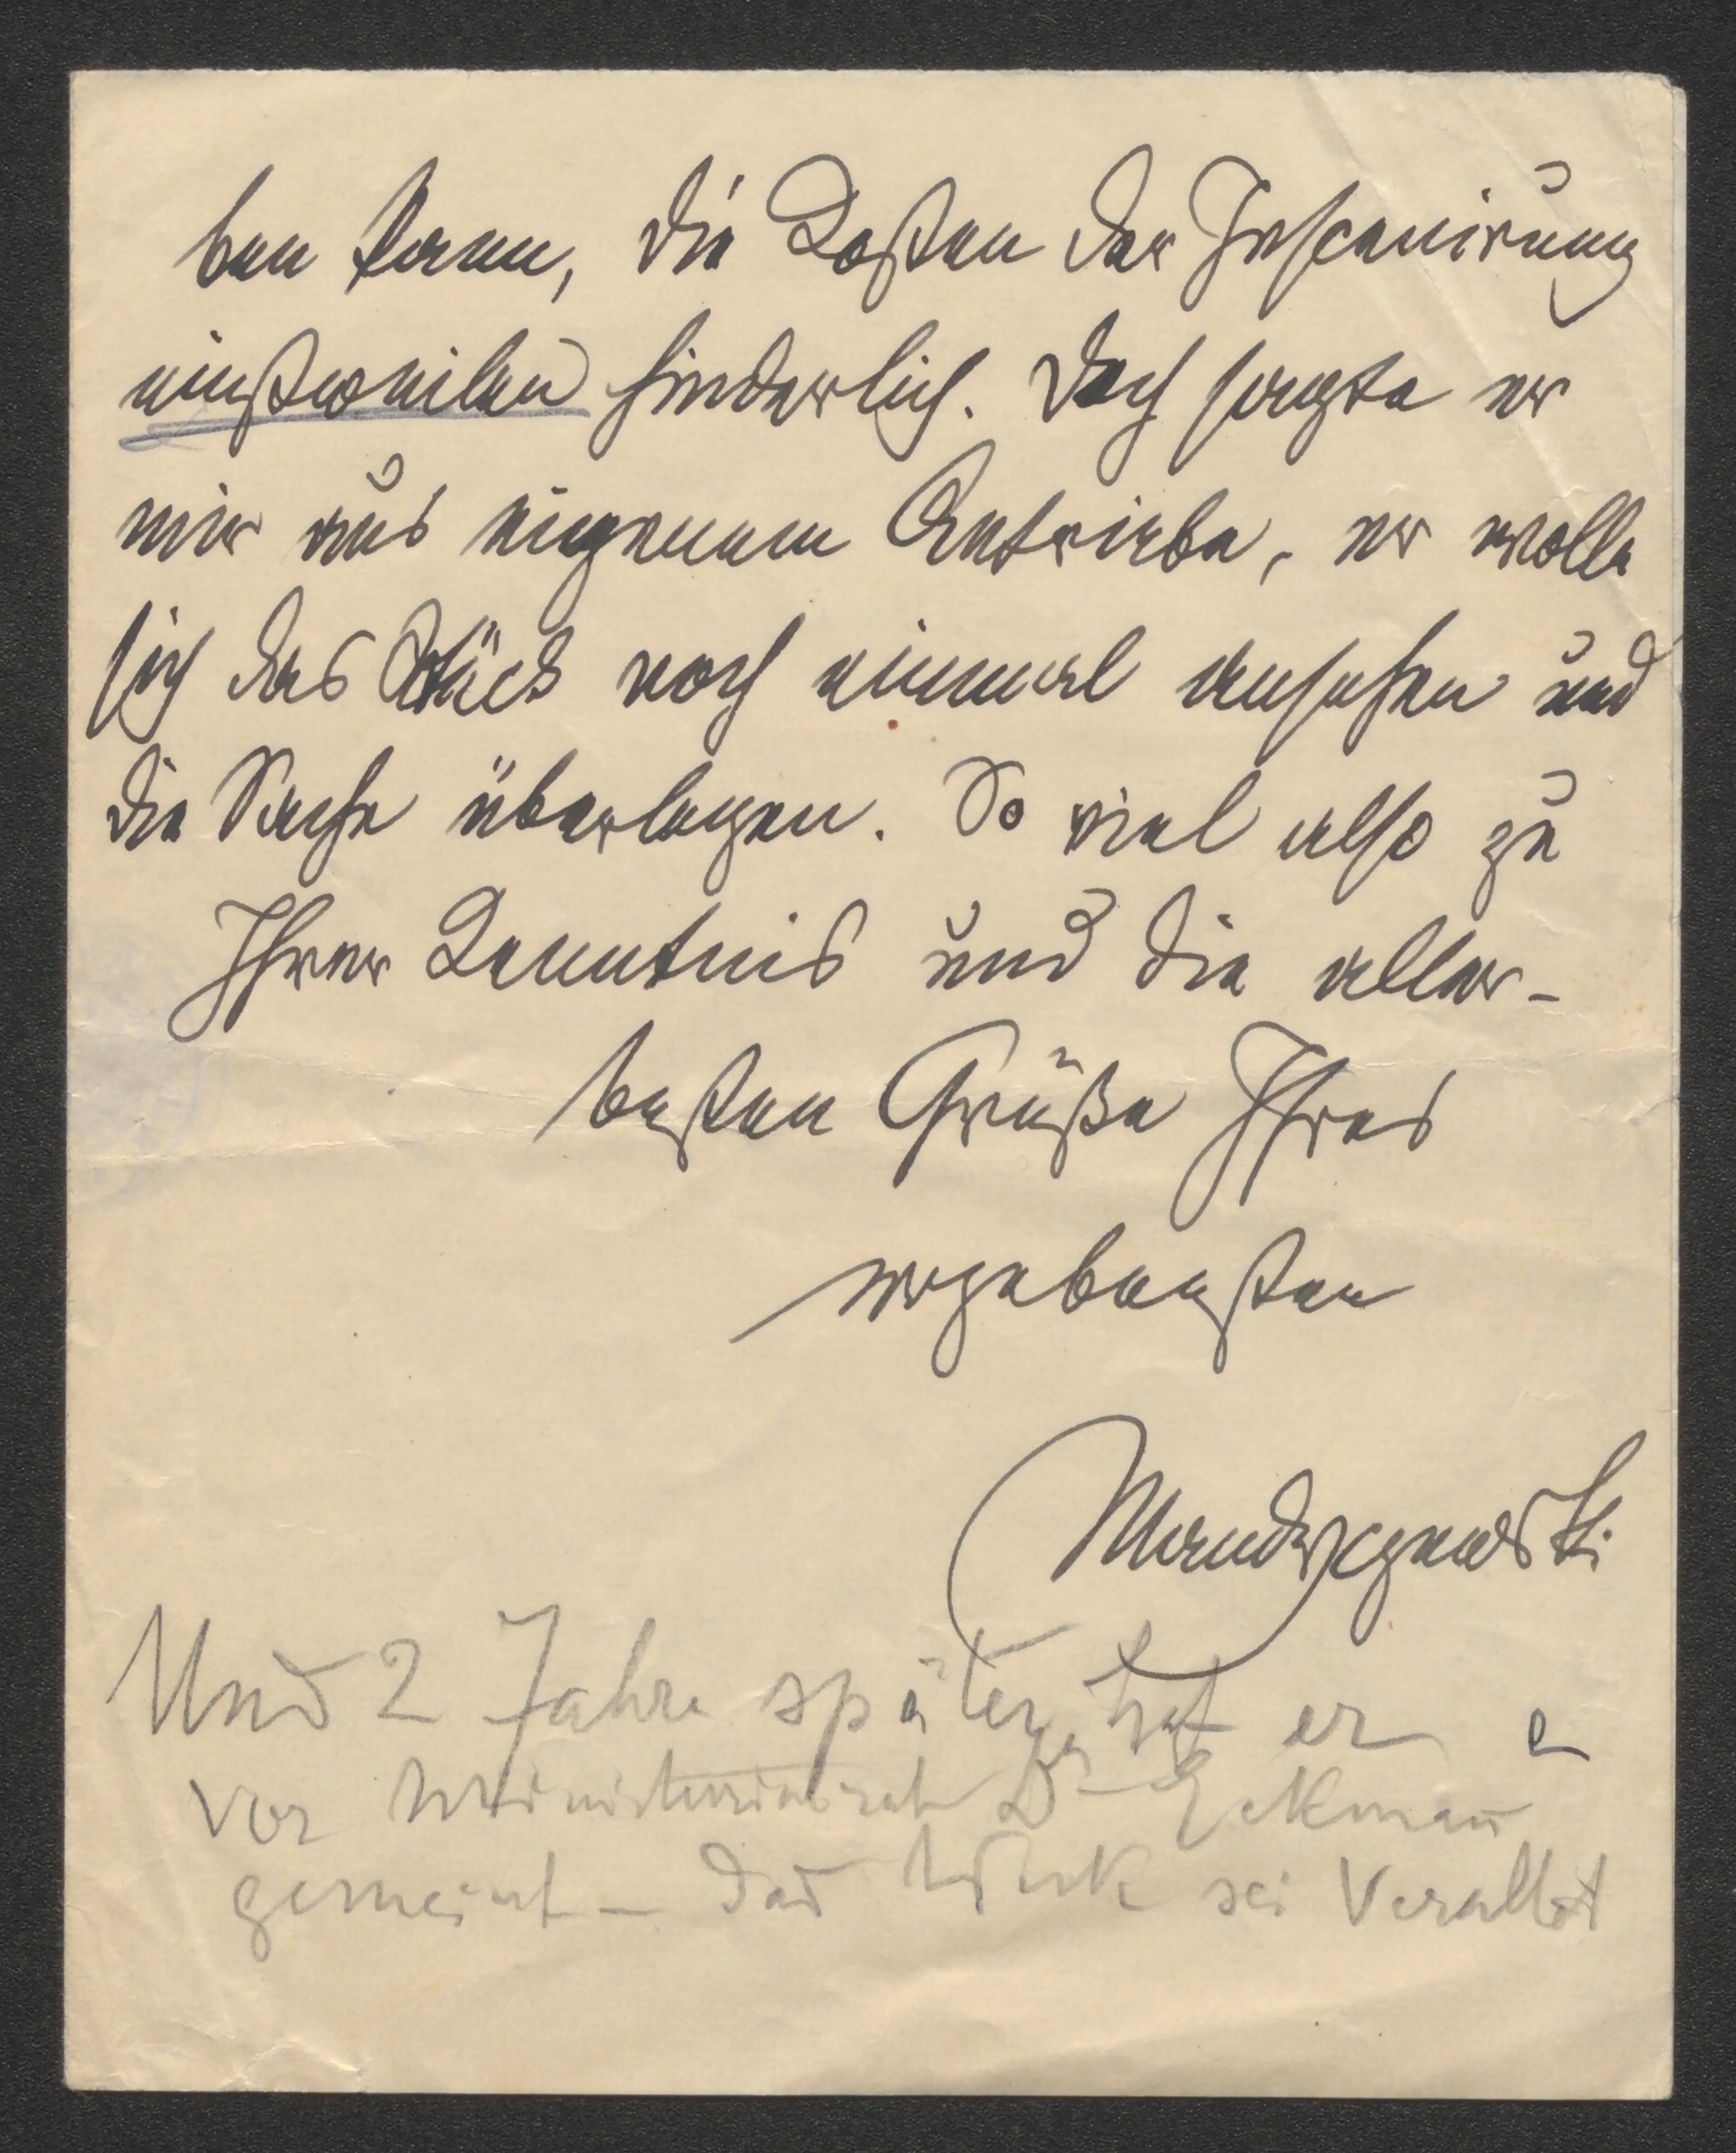 ben kann, die Kosten der Inscenirung
einstweilen hinderlich. Doch sagte er
mir aus eigenem Antriebe, er wolle
sich das Stück noch einmal ansehen und
die Sache überlegen. So viel also zu
Ihrer Kenntnis und die aller-
besten Grüße Ihres
ergebensten
Mandyczewski
Und 2 Jahre später hat er
vor Ministerialrat Dr Eckmann
gemeint – das Werk sei veraltet